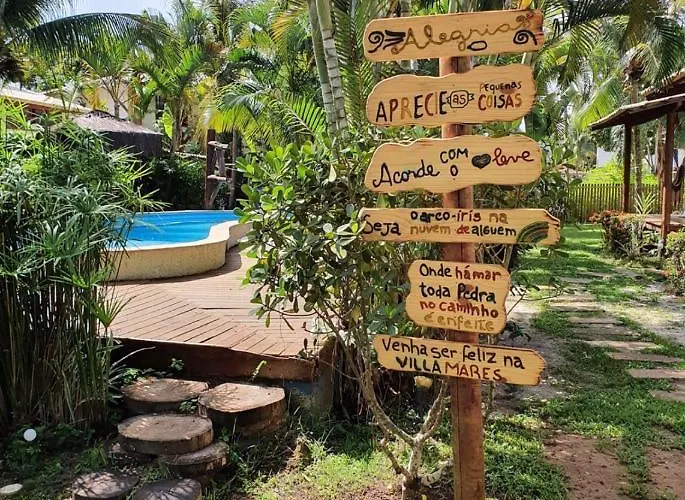 Alegria
APRECIE AS PEQUENAS
COISAS
Acorde com
o ♥ leve
Seja o arco-íris na
nuvem de alguém
Onde há mar
toda Pedra
no caminho
é enfeite
Venha ser feliz na
VILLA MARES